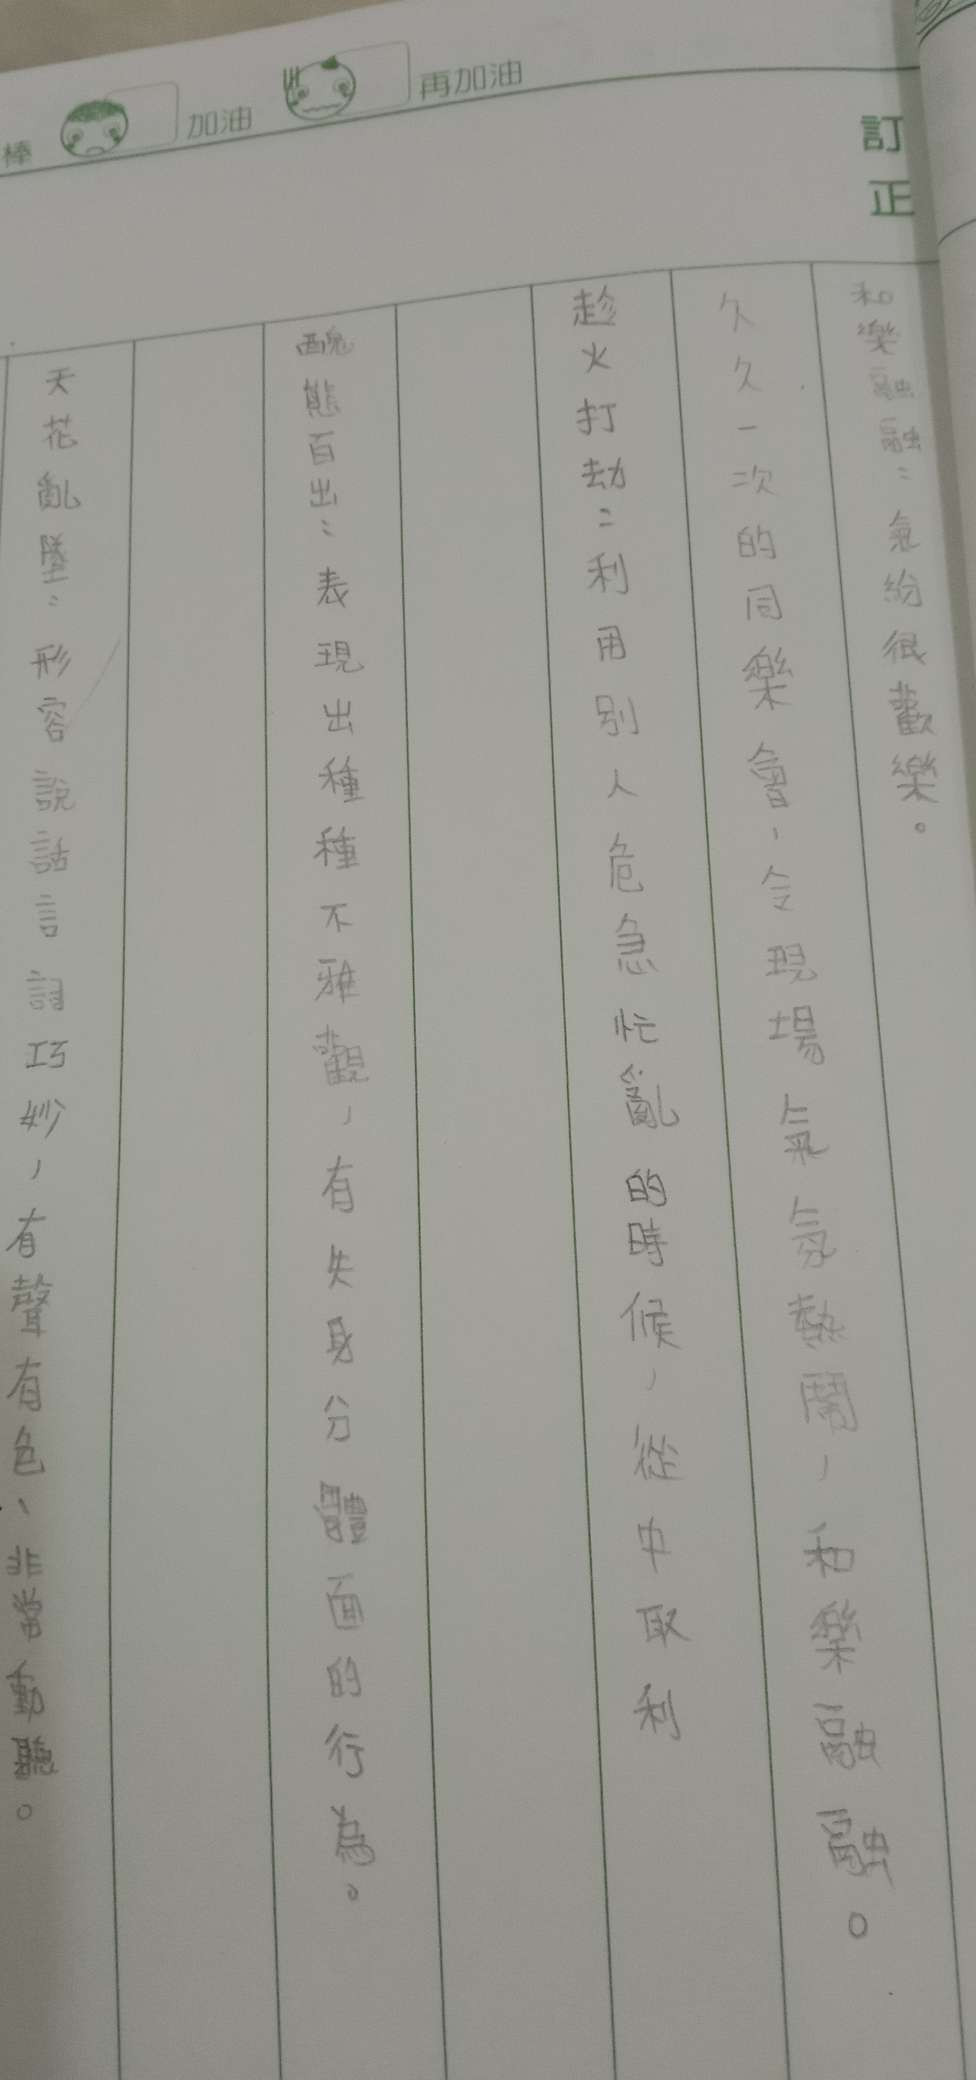 棒 加油 再加油
訂正
和樂融融：氣紛很歡樂。
久久一次的同樂會，令現場氣氛熱鬧，和樂融融。
趁火打劫：利用別人危急忙亂的時候，從中取利
醜態百出：表現出種種不雅觀，有失身分體面的行為。
天花亂墜：形容說話言詞巧妙，有聲有色、非常動聽。